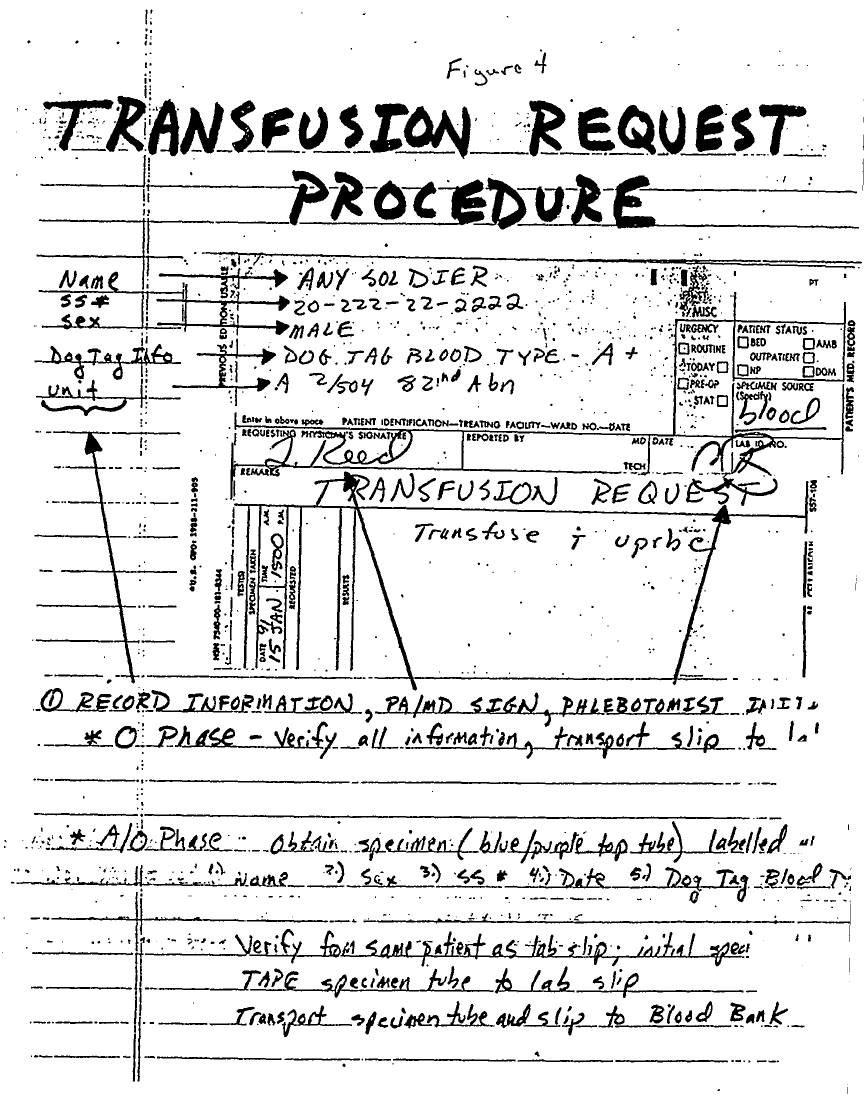 Figure 4
TRANSFUSION REQUEST
PROCEDURE
Name
SS#
Sex
Dog Tag Info
Unit
PREVIOUS EDITION USABLE
ANY SOLDIER
20-222-22-2222
MALE
DOG TAG BLOOD TYPE - A +
A 2/504 82nd Abn
MISC
URGENCY
ROUTINE
TODAY
PRE-OP
STAT
PT
PATIENT STATUS
BED AMB
OUTPATIENT
NP DOM
SPECIMEN SOURCE
(Specify)
blood
PATIENT'S MED. RECORD
Enter in above space PATIENT IDENTIFICATION—TREATING FACILITY—WARD NO.—DATE
REQUESTING PHYSICIAN'S SIGNATURE
J. Reed
REPORTED BY
MD
TECH
DATE
LAB ID NO.
REMARKS
TRANSFUSION REQUEST
Transfuse uprbc
U.S. GPO: 1988-211-905
NSN 7540-00-181-8344
TEST(S)
SPECIMEN TAKEN
DATE 15 JAN 91
TIME 1500 A.M. P.M.
REQUESTED
RESULTS
① RECORD INFORMATION, PA/MD SIGN, PHLEBOTOMIST
* O Phase - Verify all information, transport slip to
* A/O Phase - Obtain specimen (blue/purple top tube) labelled
1.) Name 2.) Sex 3.) SS # 4.) Date 5.) Dog Tag Blood
Verify from same patient as lab slip; initial
TAPE specimen tube to lab slip
Transport specimen tube and slip to Blood Bank